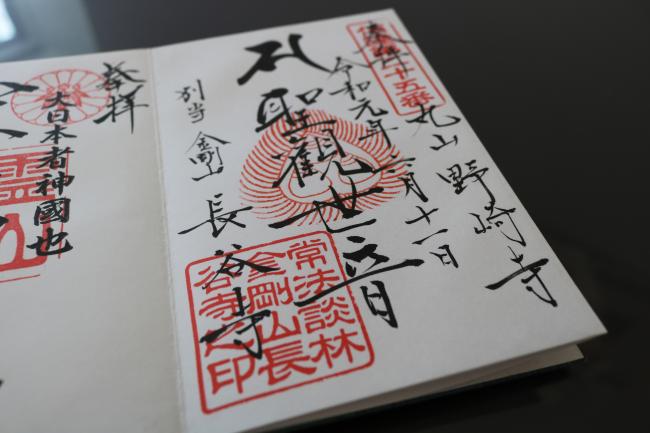 奉拝
丸山 野崎寺
令和元年
月十一日
聖觀世音
別当 金剛山 長谷寺
常法談林
金剛山長
谷寺之印
十五番
奉拝
大日本者神國也
霊